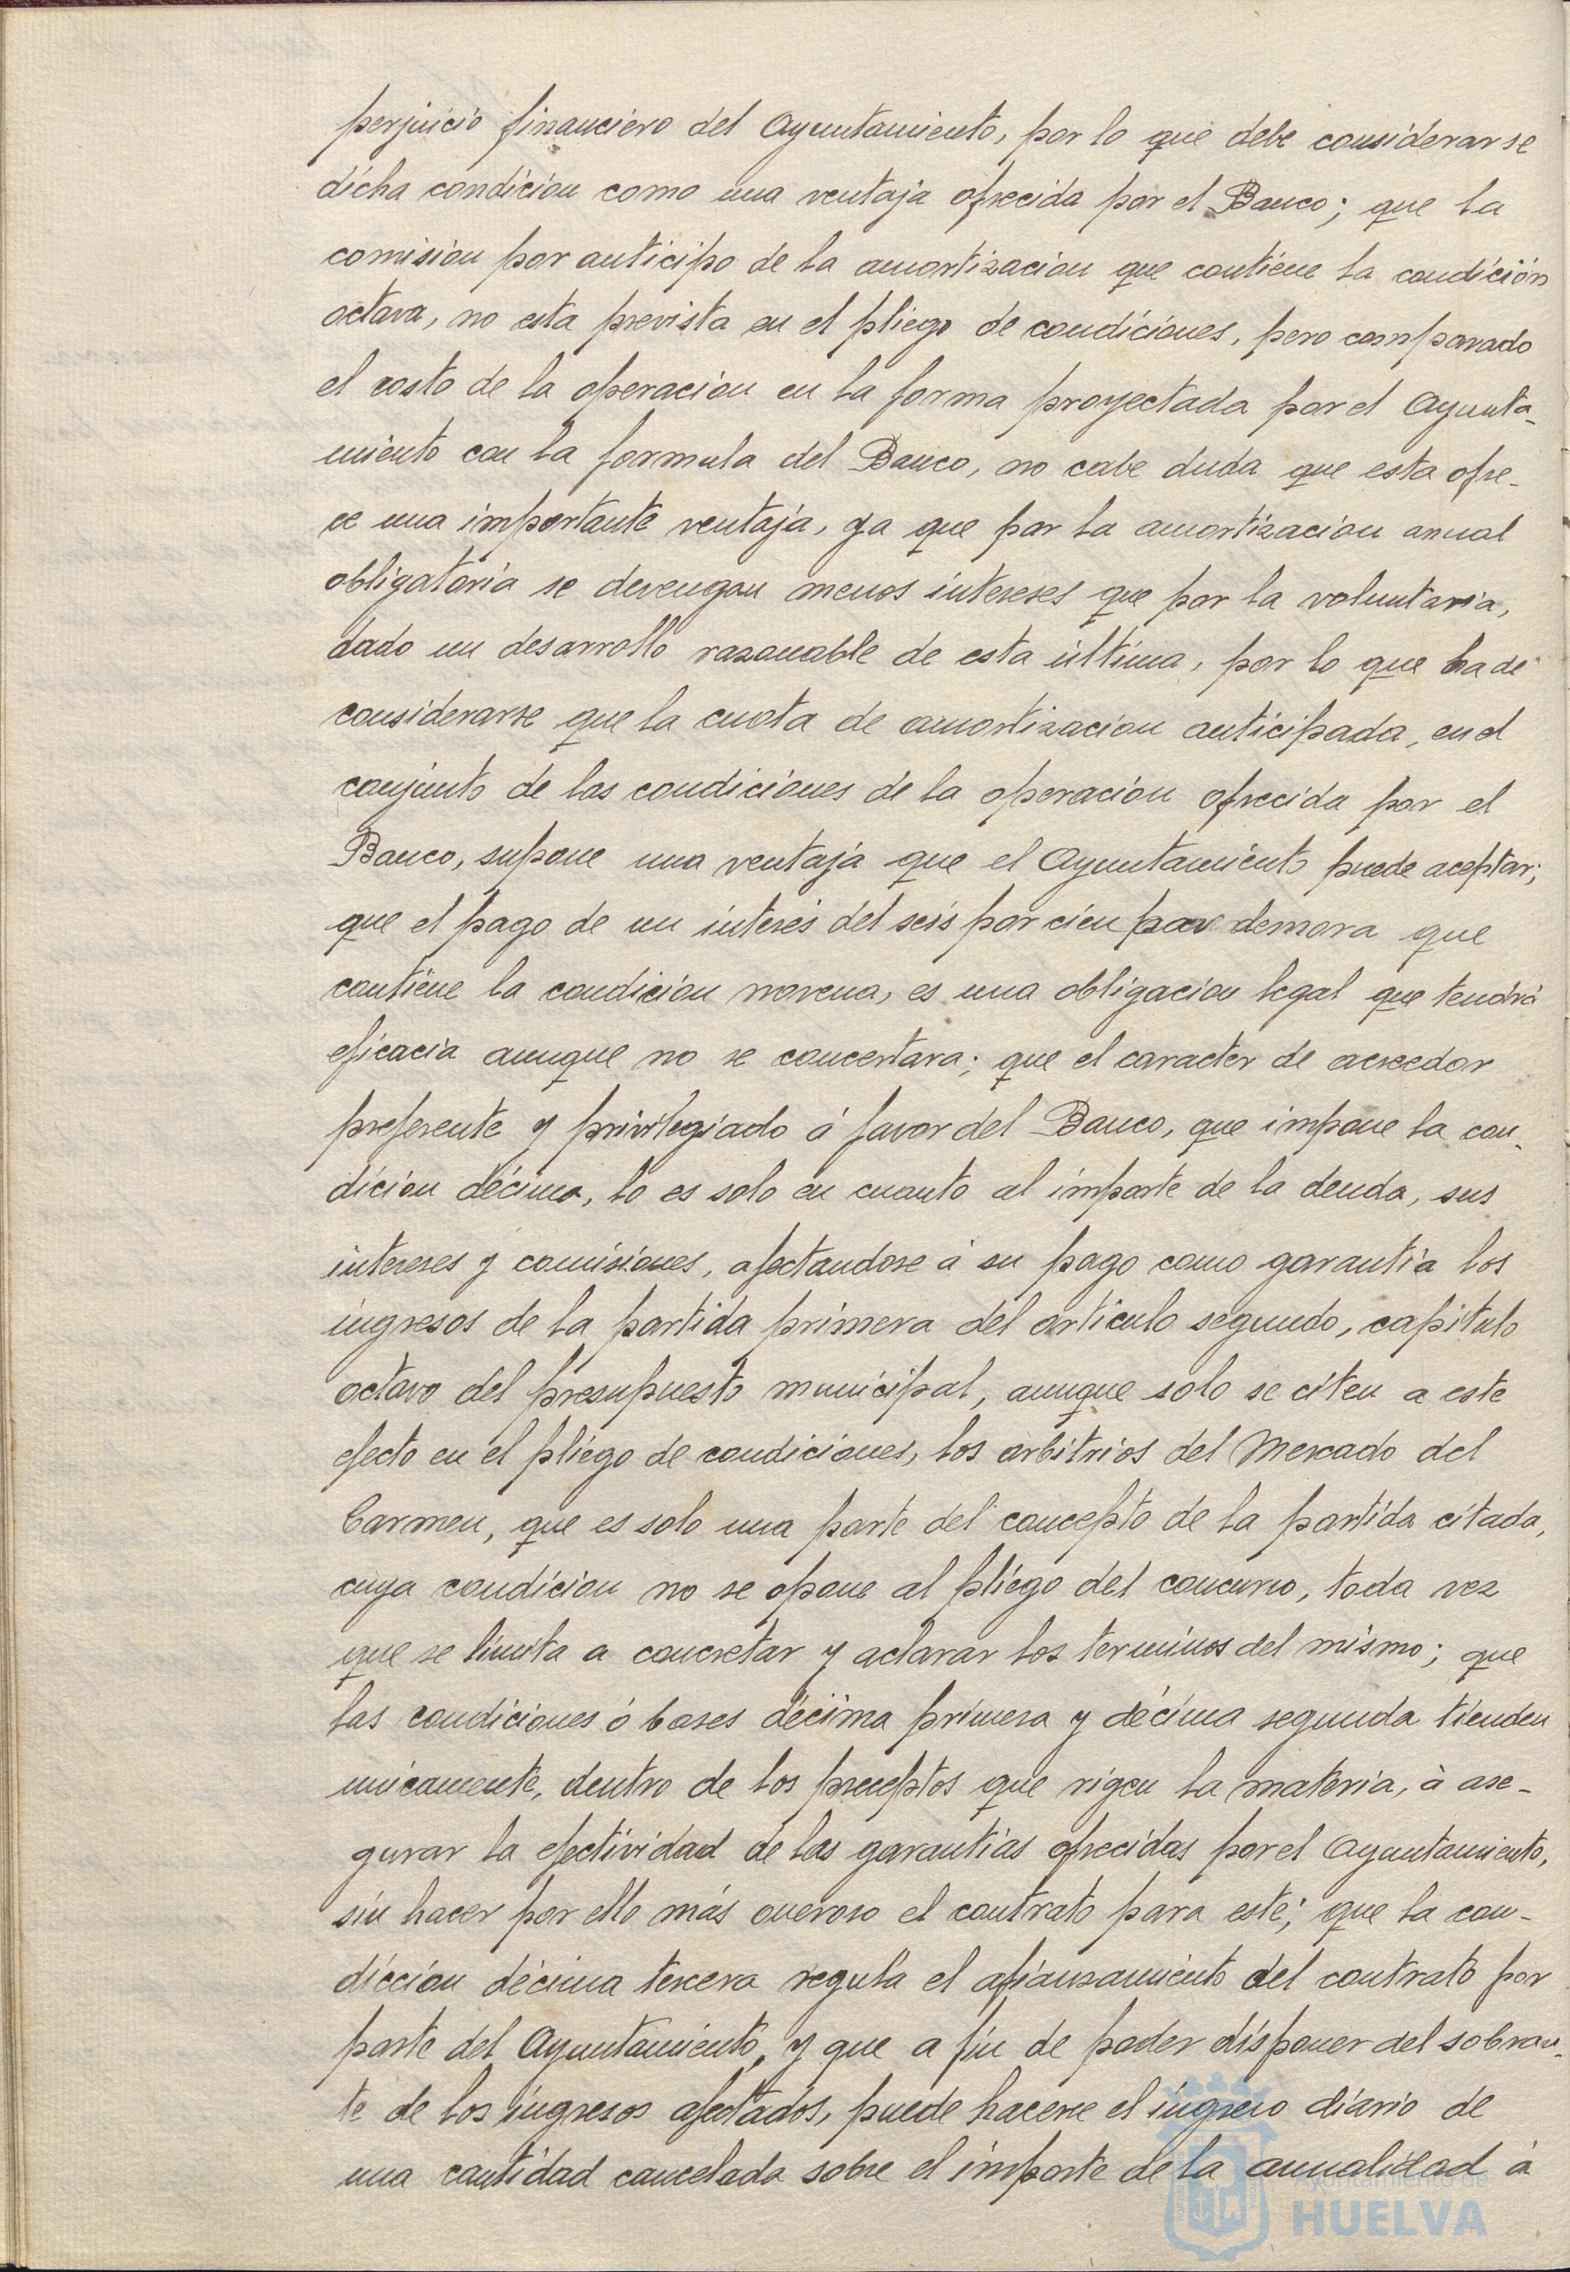 perjuicio financiero del Ayuntamiento, por lo que debe considerarse
dicha condicion como una ventaja ofrecida por el Banco; que la
comision por anticipo de la amortizacion que contiene la condición
octava, no esta prevista en el pliego de condiciones, pero comparado
el costo de la operacion en la forma proyectada por el Ayunta-
miento con la formula del Banco, no cabe duda que esta ofre-
ce una importante ventaja, ya que por la amortizacion anual
obligatoria se devengan menos intereses que por la voluntaria,
dado un desarrollo razonable de esta última, por lo que ha de
considerarse que la cuota de amortizacion anticipada, en el
conjunto de las condiciones de la operacion ofrecida por el
Banco, supone una ventaja que el Ayuntamiento puede aceptar;
que el pago de un interés del seis por cien por demora que
contiene la condicion novena, es una obligacion legal que tendrá
eficacia aunque no se concertara; que el caracter de acreedor
preferente y privilegiado á favor del Banco, que impone la con-
dicion décima, lo es solo en cuanto al importe de la deuda, sus
intereses y comisiones, afectandose á su pago como garantía los
ingresos de la partida primera del articulo segundo, capitulo
octavo del presupuesto municipal, aunque solo se citen a este
efecto en el pliego de condiciones, los arbitrios del Mercado del
Carmen, que es solo una parte del concepto de la partida citada,
cuya condicion no se opone al pliego del concurso, toda vez
que se limita a concretar y aclarar los terminos del mismo; que
las condiciones ó bases décima primera y décima segunda tienden
unicamente, dentro de los preceptos que rigen la materia, à ase-
gurar la efectividad de las garantías ofrecidas por el Ayuntamiento,
sin hacer por ello más oneroso el contrato para este; que la con-
diccion décima tercera regula el afianzamiento del contrato por
parte del Ayuntamiento, y que a fin de poder disponer del sobran-
te de los ingresos afectados, puede hacerse el ingreso diario de
una cantidad cancelada sobre el importe de la anualidad á
Ayuntamiento de
HUELVA